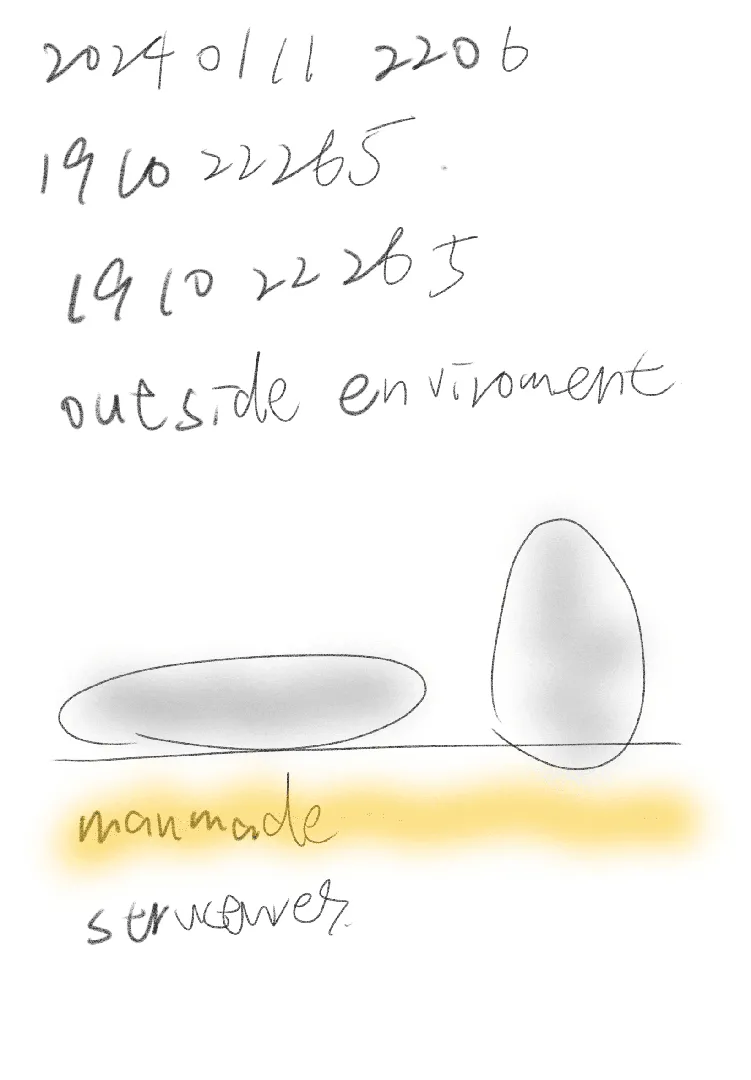 20240111 2206
1910 22265
1910 22265
outside enviroment
manmade
structures.